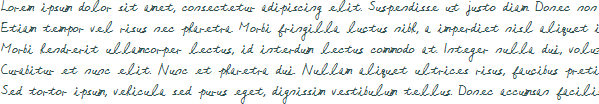 Lorem ipsum dolor sit amet, consectetur adipiscing elit. Suspendisse ut justo diam. Donec non
Etiam tempor vel risus nec pharetra. Morbi fringilla luctus nibh, a imperdiet nisl aliquet i
Morbi hendrerit ullamcorper lectus, id interdum lectus commodo at. Integer nulla dui, volu
Curabitur et nunc elit. Nunc et pharetra dui. Nullam aliquet ultrices risus, faucibus preti
Sed tortor ipsum, vehicula sed purus eget, dignissim vestibulum tellus. Donec accumsan facili